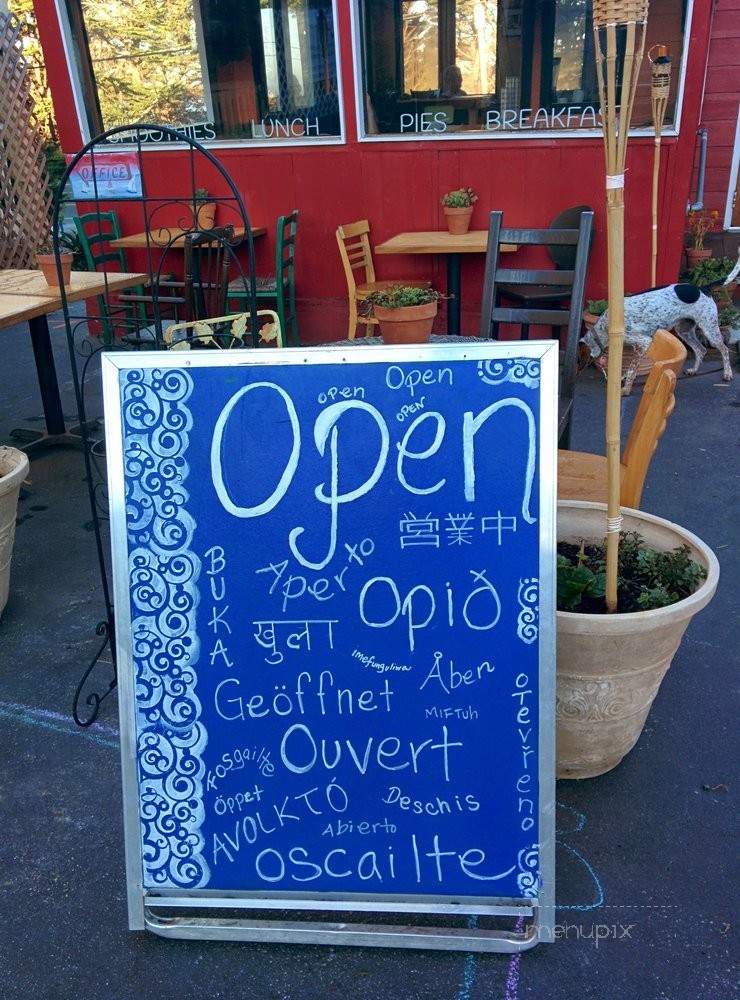 SMOOTHIES LUNCH PIES BREAKFAST
OFFICE
open Open
Open
OPEN
営業中
BUKA
Aperto
Opið
खुला
imefunguliwa
Åben
Geöffnet
MIFTUH
otevřeno
Ouvert
Fosgailte
Öppet
AVOLKTÓ
Deschis
Abierto
oscailte
menupix